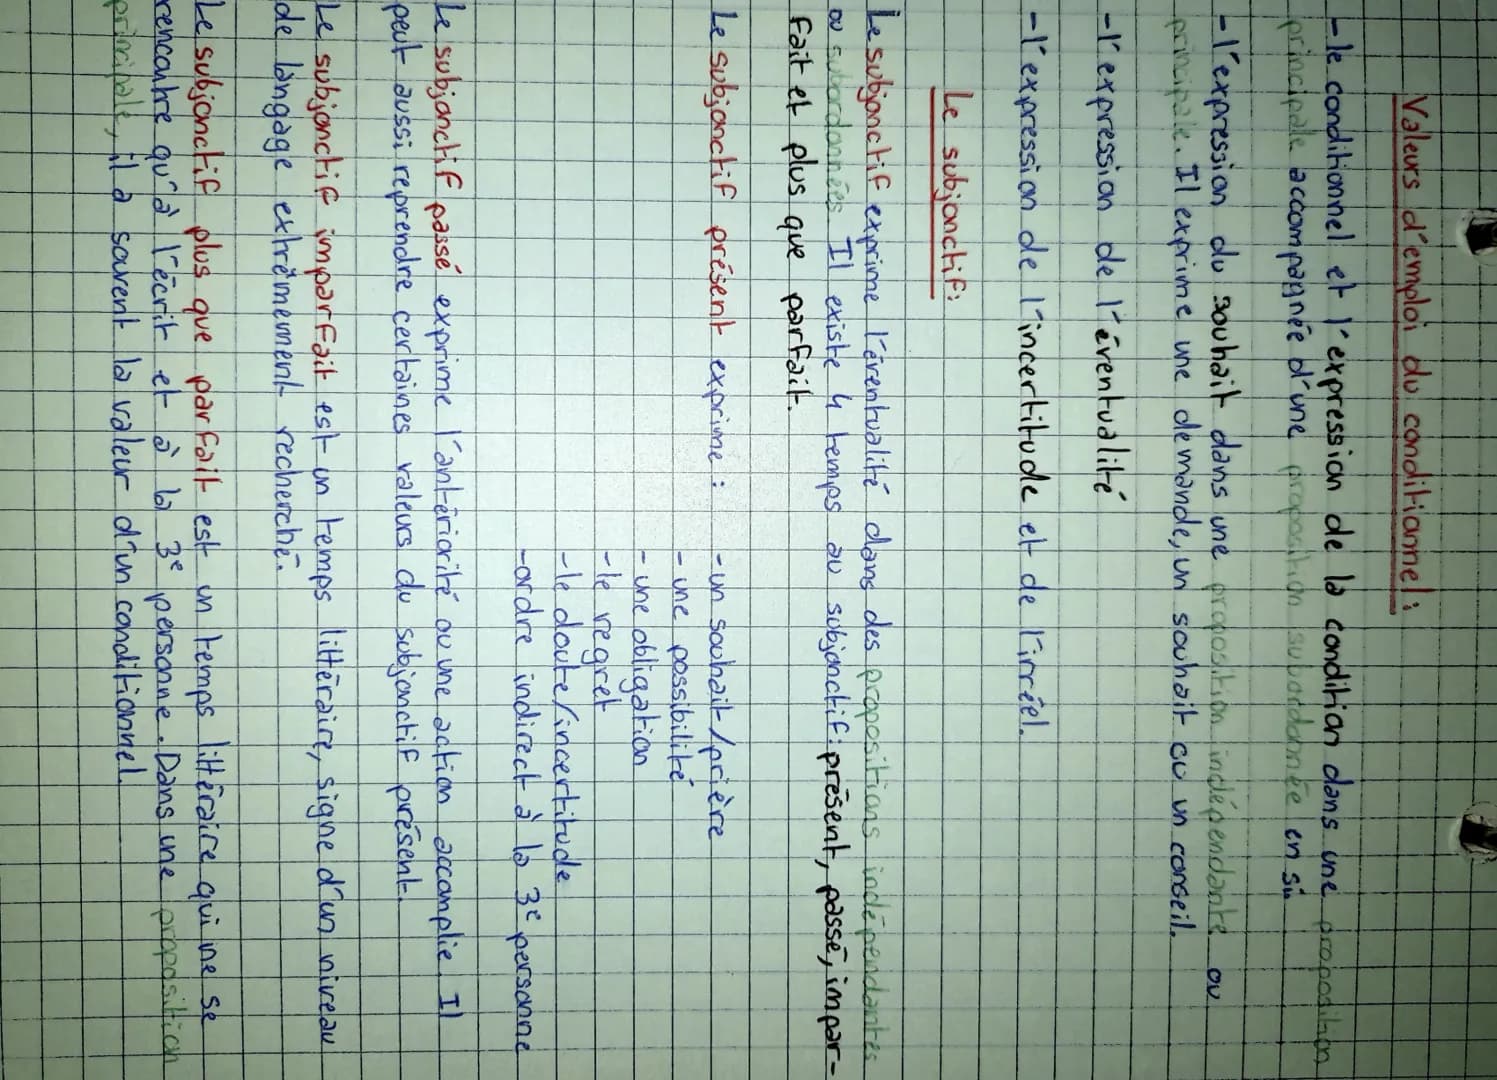 Valeurs d'emploi du conditionnel:
- le conditionnel et l'expression de la condition dans une proposition
principale accompagnée d'une proposition subordonnée en si.
- l'expression du souhait dans une proposition indépendante ou
principale. Il exprime une demande, un souhait ou un conseil.
- l'expression de l'éventualité
- l'expression de l'incertitude et de l'irréel.
Le subjonctif:
Le subjonctif exprime l'éventualité dans des propositions indépendantes
ou subordonnées Il existe 4 temps au subjonctif: présent, passé, impar-
fait et plus que parfait.
Le subjonctif présent exprime : - un souhait/prière
- une possibilité
- une obligation
- le regret
- le doute/incertitude
- ordre indirect à la 3e personne
Le subjonctif passé exprime l'antériorité ou une action accomplie. Il
peut aussi reprendre certaines valeurs du subjonctif présent.
Le subjonctif imparfait est un temps littéraire, signe d'un niveau
de langage extrêmement recherché.
Le subjonctif plus que parfait est un temps littéraire qui ne se
rencontre qu'à l'écrit et à la 3e personne. Dans une proposition
principale, il a souvent la valeur d'un conditionnel.